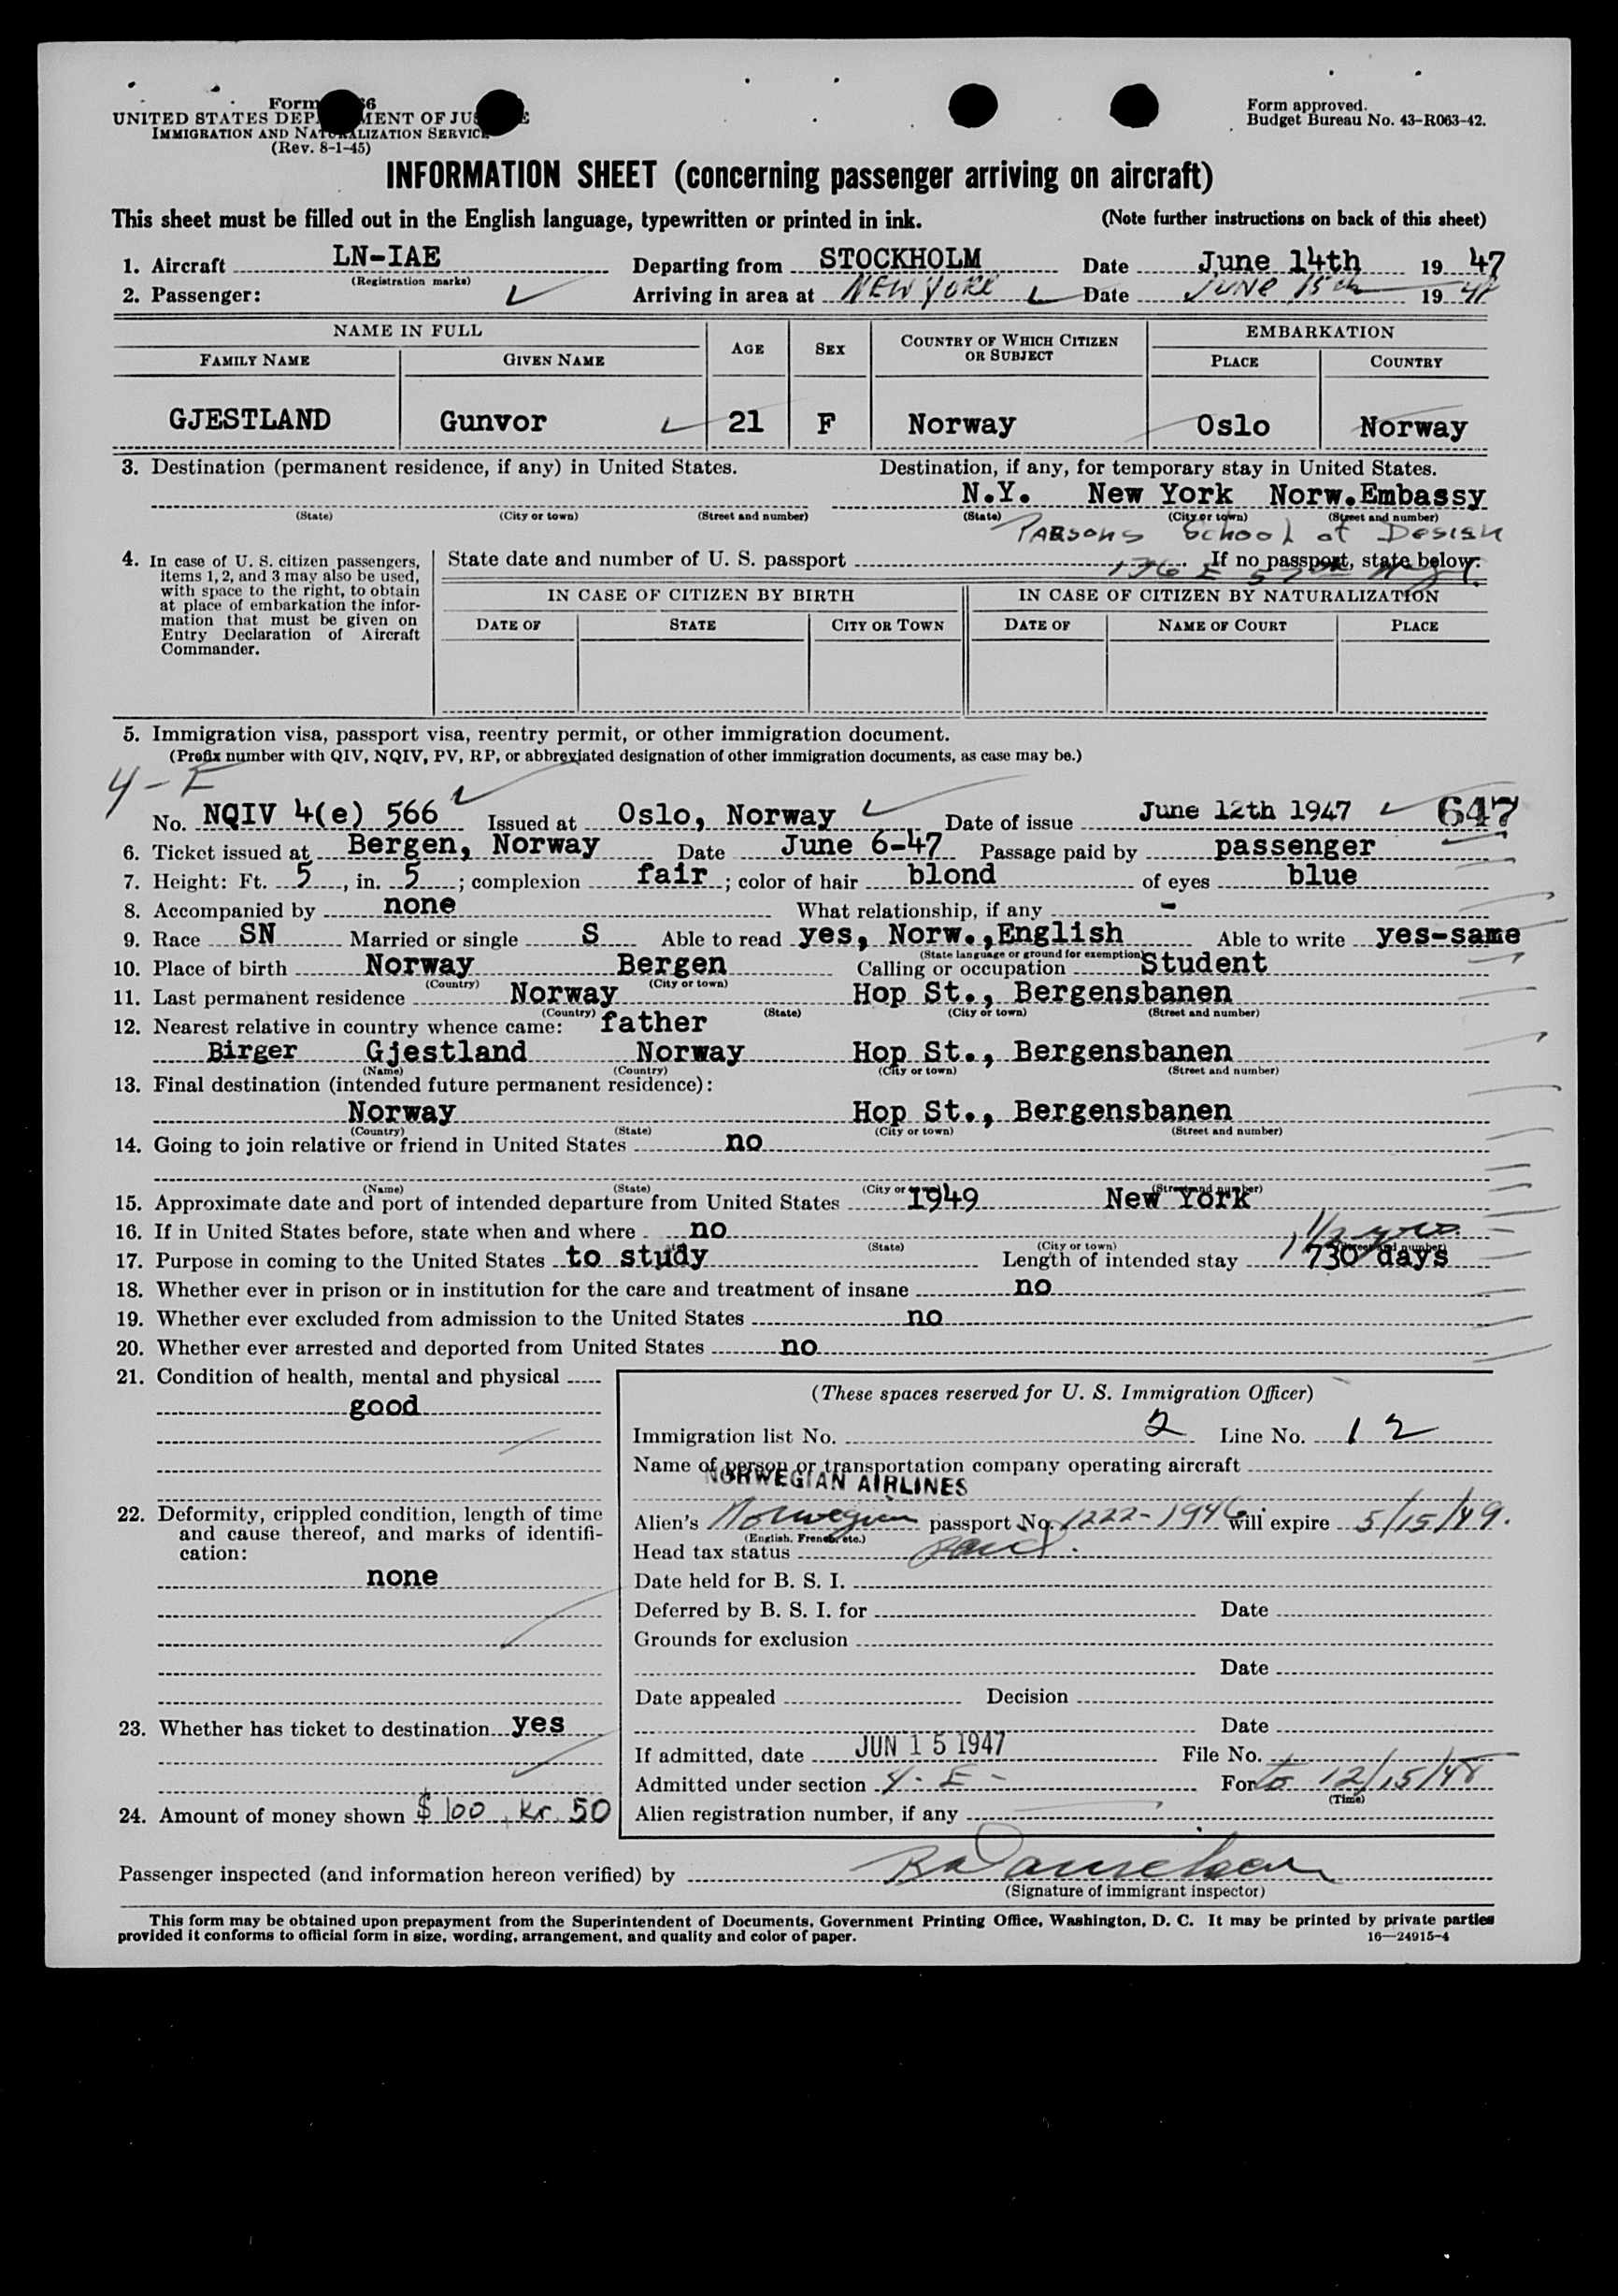 Form 66
UNITED STATES DEP MENT OF JUS E
IMMIGRATION AND NATURALIZATION SERVICE
(Rev. 8-1-45)
Form approved.
Budget Bureau No. 43-R063-42.
INFORMATION SHEET (concerning passenger arriving on aircraft)
This sheet must be filled out in the English language, typewritten or printed in ink. (Note further instructions on back of this sheet)
1. Aircraft LN-IAE Departing from STOCKHOLM Date June 14th 19 47
(Registration marks)
2. Passenger: Arriving in area at NEW YORK Date JUNE 15th 19 47
NAME IN FULL AGE SEX COUNTRY OF WHICH CITIZEN OR SUBJECT EMBARKATION
FAMILY NAME GIVEN NAME PLACE COUNTRY
GJESTLAND Gunvor 21 F Norway Oslo Norway
3. Destination (permanent residence, if any) in United States. Destination, if any, for temporary stay in United States.
N.Y. New York Norw.Embassy
(State) (City or town) (Street and number) (State) (City or town) (Street and number)
PARSONS School of DESIGN
4. In case of U. S. citizen passengers, items 1, 2, and 3 may also be used, with space to the right, to obtain at place of embarkation the information that must be given on Entry Declaration of Aircraft Commander.
State date and number of U. S. passport If no passport, state below:
136 E 57th N.Y.
IN CASE OF CITIZEN BY BIRTH IN CASE OF CITIZEN BY NATURALIZATION
DATE OF STATE CITY OR TOWN DATE OF NAME OF COURT PLACE
5. Immigration visa, passport visa, reentry permit, or other immigration document.
(Prefix number with QIV, NQIV, PV, RP, or abbreviated designation of other immigration documents, as case may be.)
4-E
No. NQIV 4(e) 566 Issued at Oslo, Norway Date of issue June 12th 1947 647
6. Ticket issued at Bergen, Norway Date June 6-47 Passage paid by passenger
7. Height: Ft. 5, in. 5; complexion fair; color of hair blond of eyes blue
8. Accompanied by none What relationship, if any -
9. Race SN Married or single S Able to read yes, Norw.,English Able to write yes-same
(State language or ground for exemption)
10. Place of birth Norway Bergen Calling or occupation Student
(Country) (City or town)
11. Last permanent residence Norway Hop St., Bergensbanen
(Country) (State) (City or town) (Street and number)
12. Nearest relative in country whence came: father
Birger Gjestland Norway Hop St., Bergensbanen
(Name) (Country) (City or town) (Street and number)
13. Final destination (intended future permanent residence):
Norway Hop St., Bergensbanen
(Country) (State) (City or town) (Street and number)
14. Going to join relative or friend in United States no
(Name) (State) (City or town) (Street and number)
15. Approximate date and port of intended departure from United States 1949 New York
16. If in United States before, state when and where no
1 1/2 yrs.
(State) (City or town) (Street and number)
17. Purpose in coming to the United States to study Length of intended stay 730 days
18. Whether ever in prison or in institution for the care and treatment of insane no
19. Whether ever excluded from admission to the United States no
20. Whether ever arrested and deported from United States no
21. Condition of health, mental and physical
good
22. Deformity, crippled condition, length of time and cause thereof, and marks of identification:
none
23. Whether has ticket to destination yes
24. Amount of money shown $100, Kr. 50
(These spaces reserved for U. S. Immigration Officer)
Immigration list No. 2 Line No. 12
Name of person or transportation company operating aircraft
NORWEGIAN AIRLINES
Alien's Norwegian passport No. 1222-1946 will expire 5/15/49.
(English, French, etc.)
Head tax status paid.
Date held for B. S. I.
Deferred by B. S. I. for Date
Grounds for exclusion
Date
Date appealed Decision
Date
If admitted, date JUN 15 1947 File No.
Admitted under section 4-E- For to 12/15/48
(Time)
Alien registration number, if any
Passenger inspected (and information hereon verified) by
(Signature of immigrant inspector)
This form may be obtained upon prepayment from the Superintendent of Documents, Government Printing Office, Washington, D. C. It may be printed by private parties
provided it conforms to official form in size, wording, arrangement, and quality and color of paper. 16—24915-4